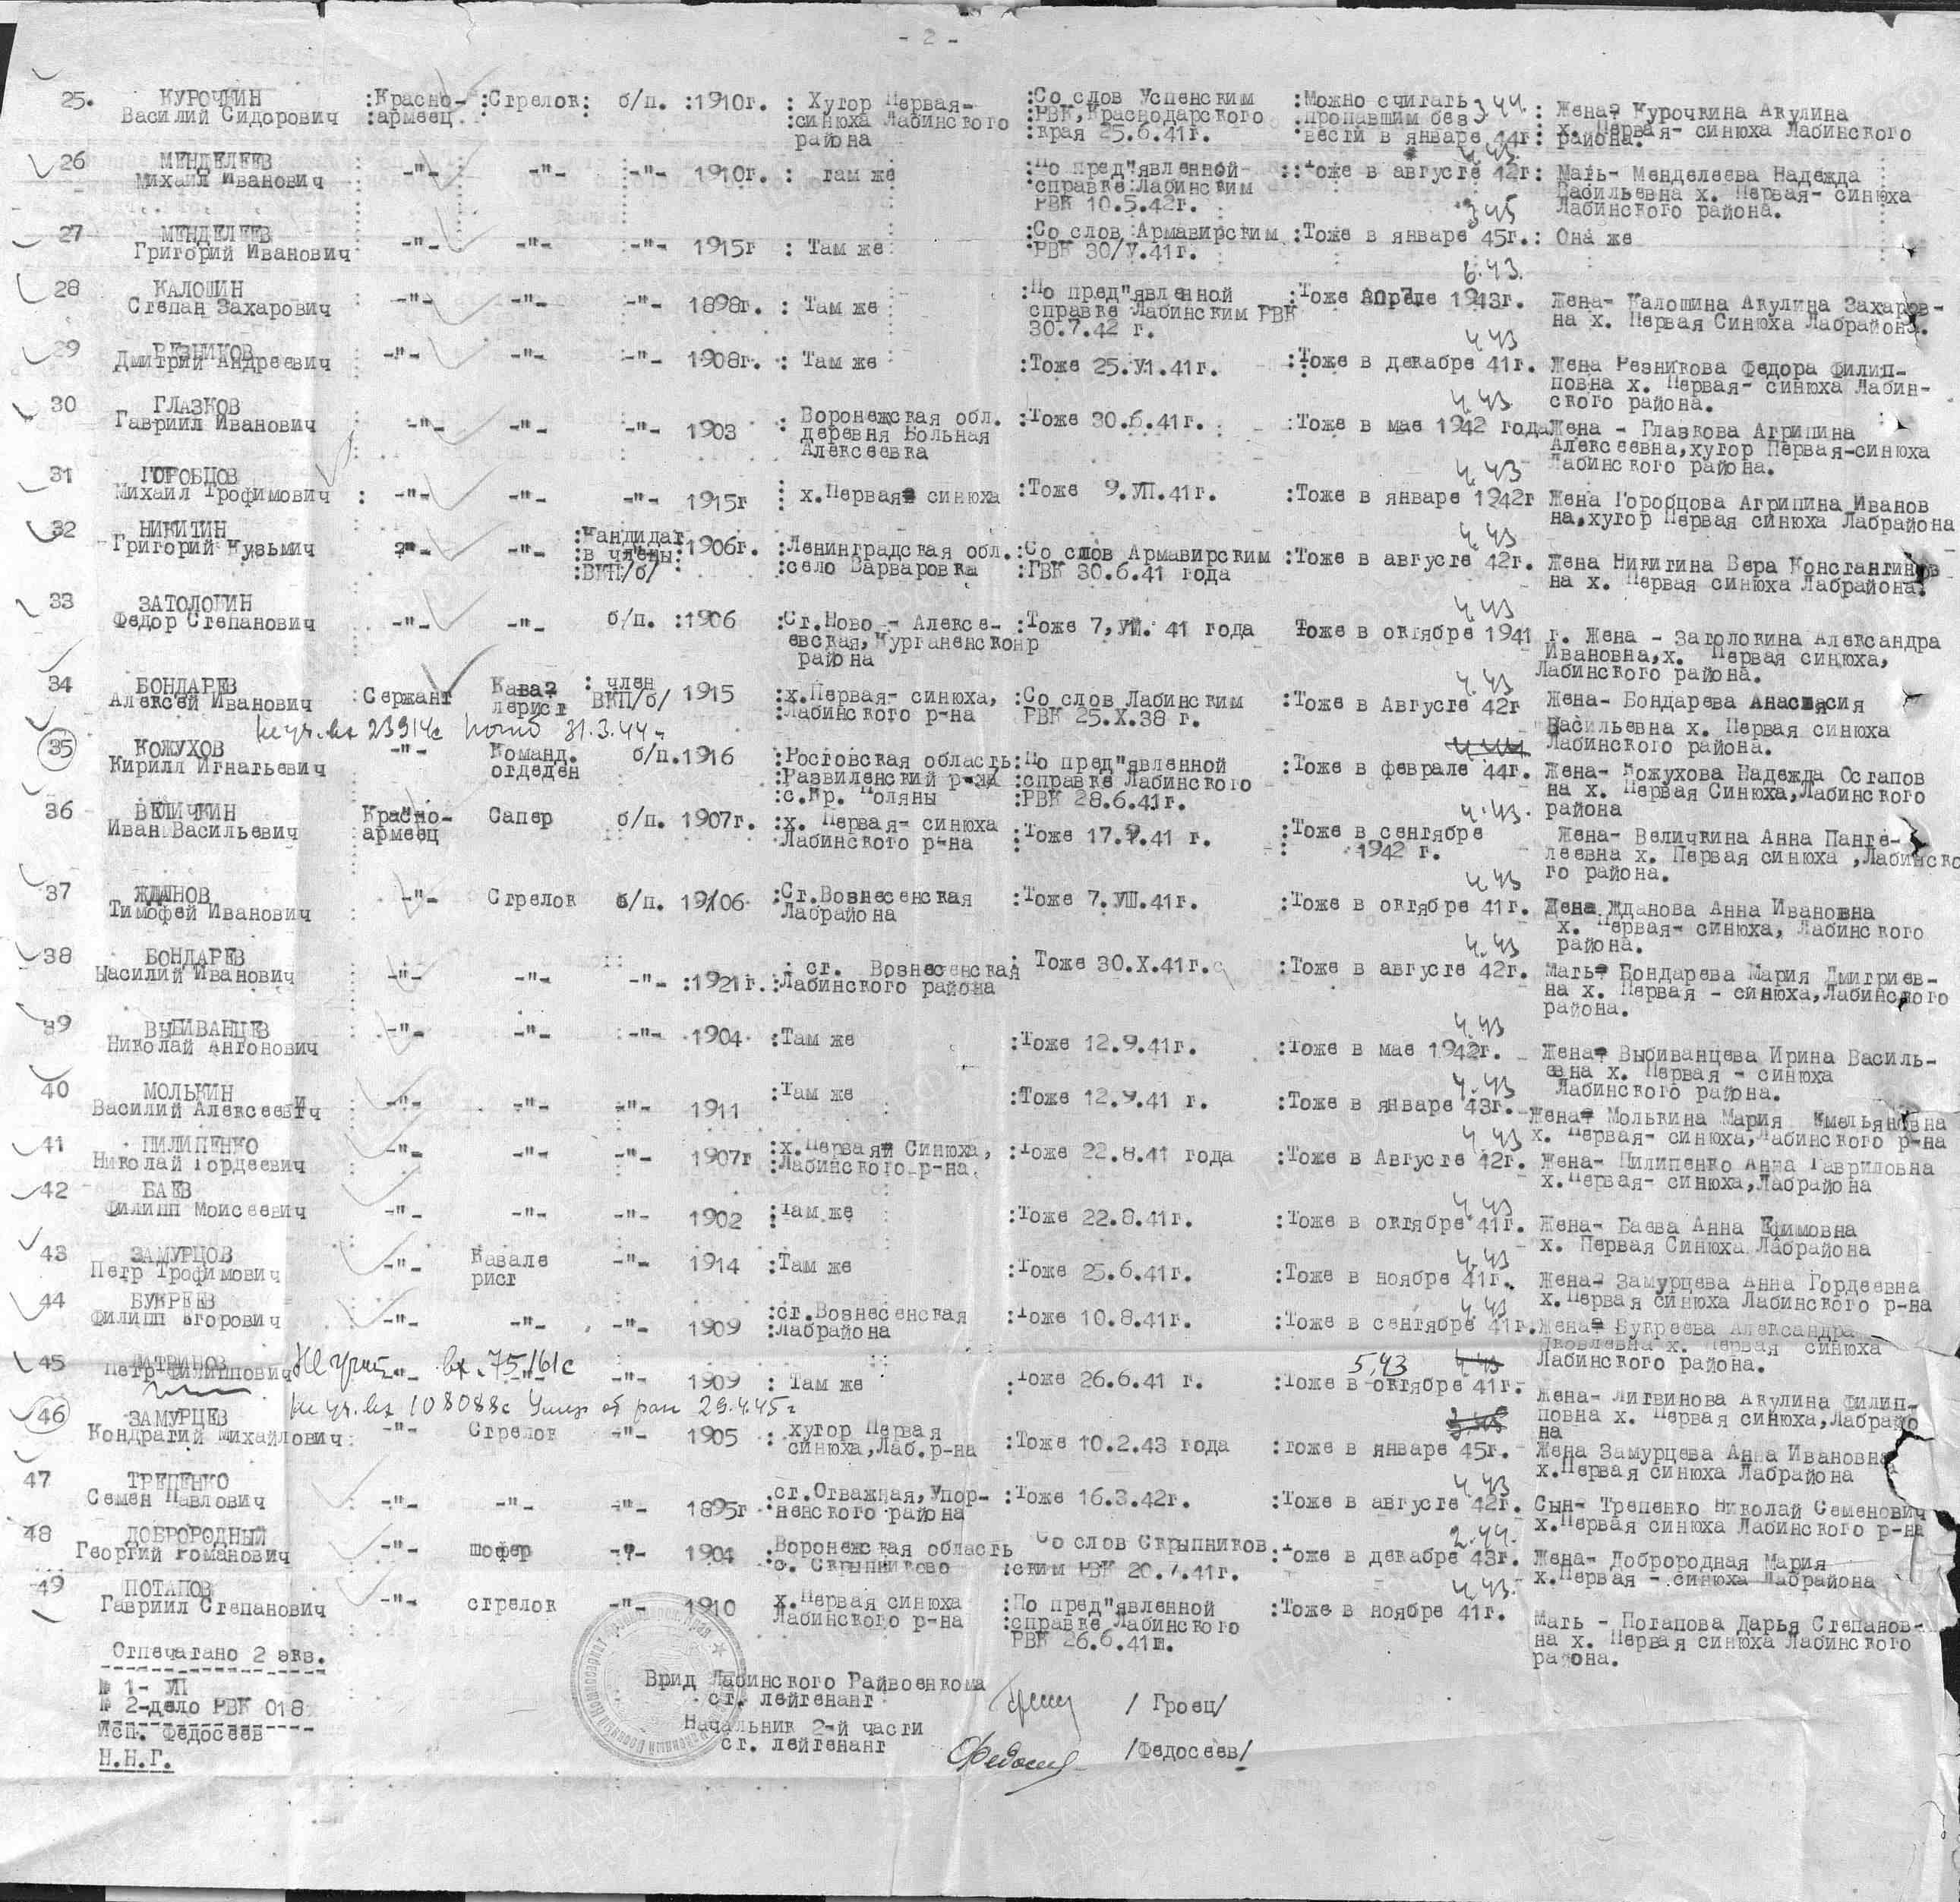 - 2 -
25. КУРОЧКИН Василий Сидорович :Красно-армеец :Стрелок: б/п. :1910г. : Хутор Первая-синюха Лабинского района :Со слов Успенским РВК, Краснодарского края 25.6.41г. :Можно считать пропавшим без вести в январе 44г: 3.44. Жена? Курочкина Акулина х. Первая- синюха Лабинского района.
26 МЕНДЕЛЕЕВ Михаил Иванович -"- -"- -"- 1910г. : там же По пред"явленной справке Лабинским РВК 10.5.42г. Тоже в августе 42г: 4.43. Мать- Менделеева Надежда Васильевна х. Первая- синюха Лабинского района.
27 МЕНДЕЛЕЕВ Григорий Иванович -"- -"- -"- 1915г : Там же :Со слов Армавирским РВК 30/V.41г. :Тоже в январе 45г.: 3.45 Она же
28 КАЛОШИН Степан Захарович -"- -"- -"- 1898г. : Там же :По пред"явленной справке Лабинским РВК 30.7.42 г. :Тоже 1943г. 6.43. Жена- Калошина Акулина Захаров-на х. Первая Синюха Лабрайона.
29 РЕЗНИКОВ Дмитрий Андреевич -"- -"- -"- 1908г. : Там же :Тоже 25.У1.41г. :Тоже в декабре 41г. 4.43 Жена Резникова Федора Филип-повна х. Первая- синюха Лабин-ского района.
30 ГЛАЗКОВ Гавриил Иванович -"- -"- -"- 1903 : Воронежская обл. деревня Больная Алексеевка :Тоже 30.6.41г. :Тоже в мае 1942 года 4.43 Жена - Глазкова Агрипина Алексеевна, хутор Первая-синюха Лабинского района.
31 ГОРОБЦОВ Михаил Трофимович : -"- -"- -"- 1915г : х.Первая- синюха :Тоже 9.УП.41г. :Тоже в январе 1942г 4.43 Жена Горобцова Агрипина Иванов на, хутор Первая синюха Лабрайона
32 НИКИТИН Григорий Кузьмич -"- -"- :Кандидат :в члены: :ВКП/б/ 1906г. :Ленинградская обл. :село Варваровка :Со слов Армавирским :ГВК 30.6.41 года :Тоже в августе 42г. 4.43 Жена Никитина Вера Константинов на х. Первая синюха Лабрайона.
33 ЗАТОЛОКИН Федор Степанович -"- -"- б/п. :1906 :Ст.Ново - Алексе-евская, Курганенсконр района :Тоже 7,УШ. 41 года Тоже в октябре 1941 г. 4.43 Жена - Затолокина Александра Ивановна, х. Первая синюха, Лабинского района.
34 БОНДАРЕВ Алексей Иванович :Сержант Кава?лерист : член ВКП/б/ 1915 :х.Первая- синюха, :Лабинского р-на :Со слов Лабинским РВК 25.Х.38 г. :Тоже в Августе 42г 4.43 Жена- Бондарева Анастасия Васильевна х. Первая синюха Лабинского района.
не уч. вх 23914с погиб 31.3.44г
35 КОЖУХОВ Кирилл Игнатьевич -"- Команд. отделен б/п. 1916 :Ростовская область :Развиленский р-на :с.Кр. Поляны :По пред"явленной :справке Лабинского :РВК 28.6.41г. :Тоже в феврале 44г. Жена- Кожухова Надежда Остапов на х. Первая Синюха, Лабинского района
36 ВЕЛИЧКИН Иван Васильевич Красно-армеец Сапер б/п. 1907г. :х. Первая- синюха Лабинского р-на :Тоже 17.9.41 г. :Тоже в сентябре 1942 г. 4.43. Жена- Величкина Анна Панте-леевна х. Первая синюха ,Лабинско го района.
37 ЖДАНОВ Тимофей Иванович -"- Стрелок б/п. 19/06 :Ст.Вознесенская Лабрайона :Тоже 7.УШ.41г. :Тоже в октябре 41г. 4.43 Жена Жданова Анна Ивановна х. Первая- синюха, Лабинского района.
38 БОНДАРЕВ Василий Иванович -"- -"- -"- :1921г. : ст. Вознесенская :Лабинского района Тоже 30.Х.41г. :Тоже в августе 42г. 4.43 Мать? Бондарева Мария Дмитриев-на х. Первая - синюха, Лабинского района.
39 ВЫБИВАНЦЕВ Николай Антонович -"- -"- -"- 1904 :Там же :Тоже 12.9.41г. :Тоже в мае 1942г. 4.43 Жена? Выбиванцева Ирина Василь-евна х. Первая - синюха Лабинского района.
40 МОЛЬКИН Василий Алексеевич -"- -"- -"- 1911 :Там же :Тоже 12.9.41 г. :Тоже в январе 43г. 4.43 Жена? Молькина Мария Емельяновна х. Первая- синюха, Лабинского р-на
41 ПИЛИПЕНКО Николай Гордеевич -"- -"- -"- 1907г :х.Первая Синюха, :Лабинского р-на, :Тоже 22.8.41 года :Тоже в Августе 42г. 4.43 Жена- Пилипенко Анна Гавриловна х.Первая- синюха, Лабрайона
42 БАЕВ Филипп Моисеевич -"- -"- -"- 1902 :Там же :Тоже 22.8.41г. :Тоже в октябре 41г. 4.43 Жена- Баева Анна Ефимовна х. Первая Синюха Лабрайона
43 ЗАМУРЦОВ Петр Трофимович -"- Кавале рист -"- 1914 :Там же :Тоже 25.6.41г. :Тоже в ноябре 41г. 4.43 Жена- Замурцева Анна Гордеевна х.Первая синюха Лабинского р-на
44 БУКРЕЕВ Филипп Егорович -"- -"- -"- 1909 :ст.Вознесенская :Лабрайона :Тоже 10.8.41г. :Тоже в сентябре 41г. 4.43 Жена? Букреева Александра Яковлевна х. Первая синюха Лабинского района.
45 ЛИТВИНОВ Петр Филиппович -"- -"- -"- 1909 : Там же :Тоже 26.6.41 г. :Тоже в октябре 41г. 5.43 Жена- Литвинова Акулина Филип-повна х. Первая синюха, Лабрайо на
вх. 75161с
не уч. вх 108088с Умер от ран 29.4.45г
46 ЗАМУРЦЕВ Кондратий Михайлович: -"- Стрелок -"- 1905 : хутор Первая синюха, Лаб.р-на :Тоже 10.2.43 года :тоже в январе 45г. Жена Замурцева Анна Ивановна х.Первая синюха Лабрайона
47 ТРЕПЕНКО Семен Павлович -"- -"- -"- 1895г :ст.Отважная, Упор-ненского района :Тоже 16.3.42г. :Тоже в августе 42г. 4.43 Сын- Трепенко Николай Семенович х.Первая синюха Лабинского р-на
48 ДОБРОРОДНЫЙ Георгий Романович -"- шофер -?- 1904 :Воронежская область с. Скрыпниково Со слов Скрыпников :ским РВК 20.7.41г. :Тоже в декабре 43г. 2.44. Жена- Доброродная Мария х.Первая - синюха Лабрайона
49 ПОТАПОВ Гавриил Степанович -"- стрелок -"- 1910 х.Первая синюха Лабинского р-на :По пред"явленной :справке Лабинского РВК 26.6.41г. :Тоже в ноябре 41г. 4.43. Мать - Потапова Дарья Степанов-на х. Первая синюха Лабинского района.
Отпечатано 2 экз.
№ 1- УП
№ 2-дело РВК 018
Исп. Федосеев
Н.Н.Г.
Врид Лабинского Райвоенкома
ст. лейтенант / Гроец/
Начальник 2-й части
ст. лейтенант /Федосеев/